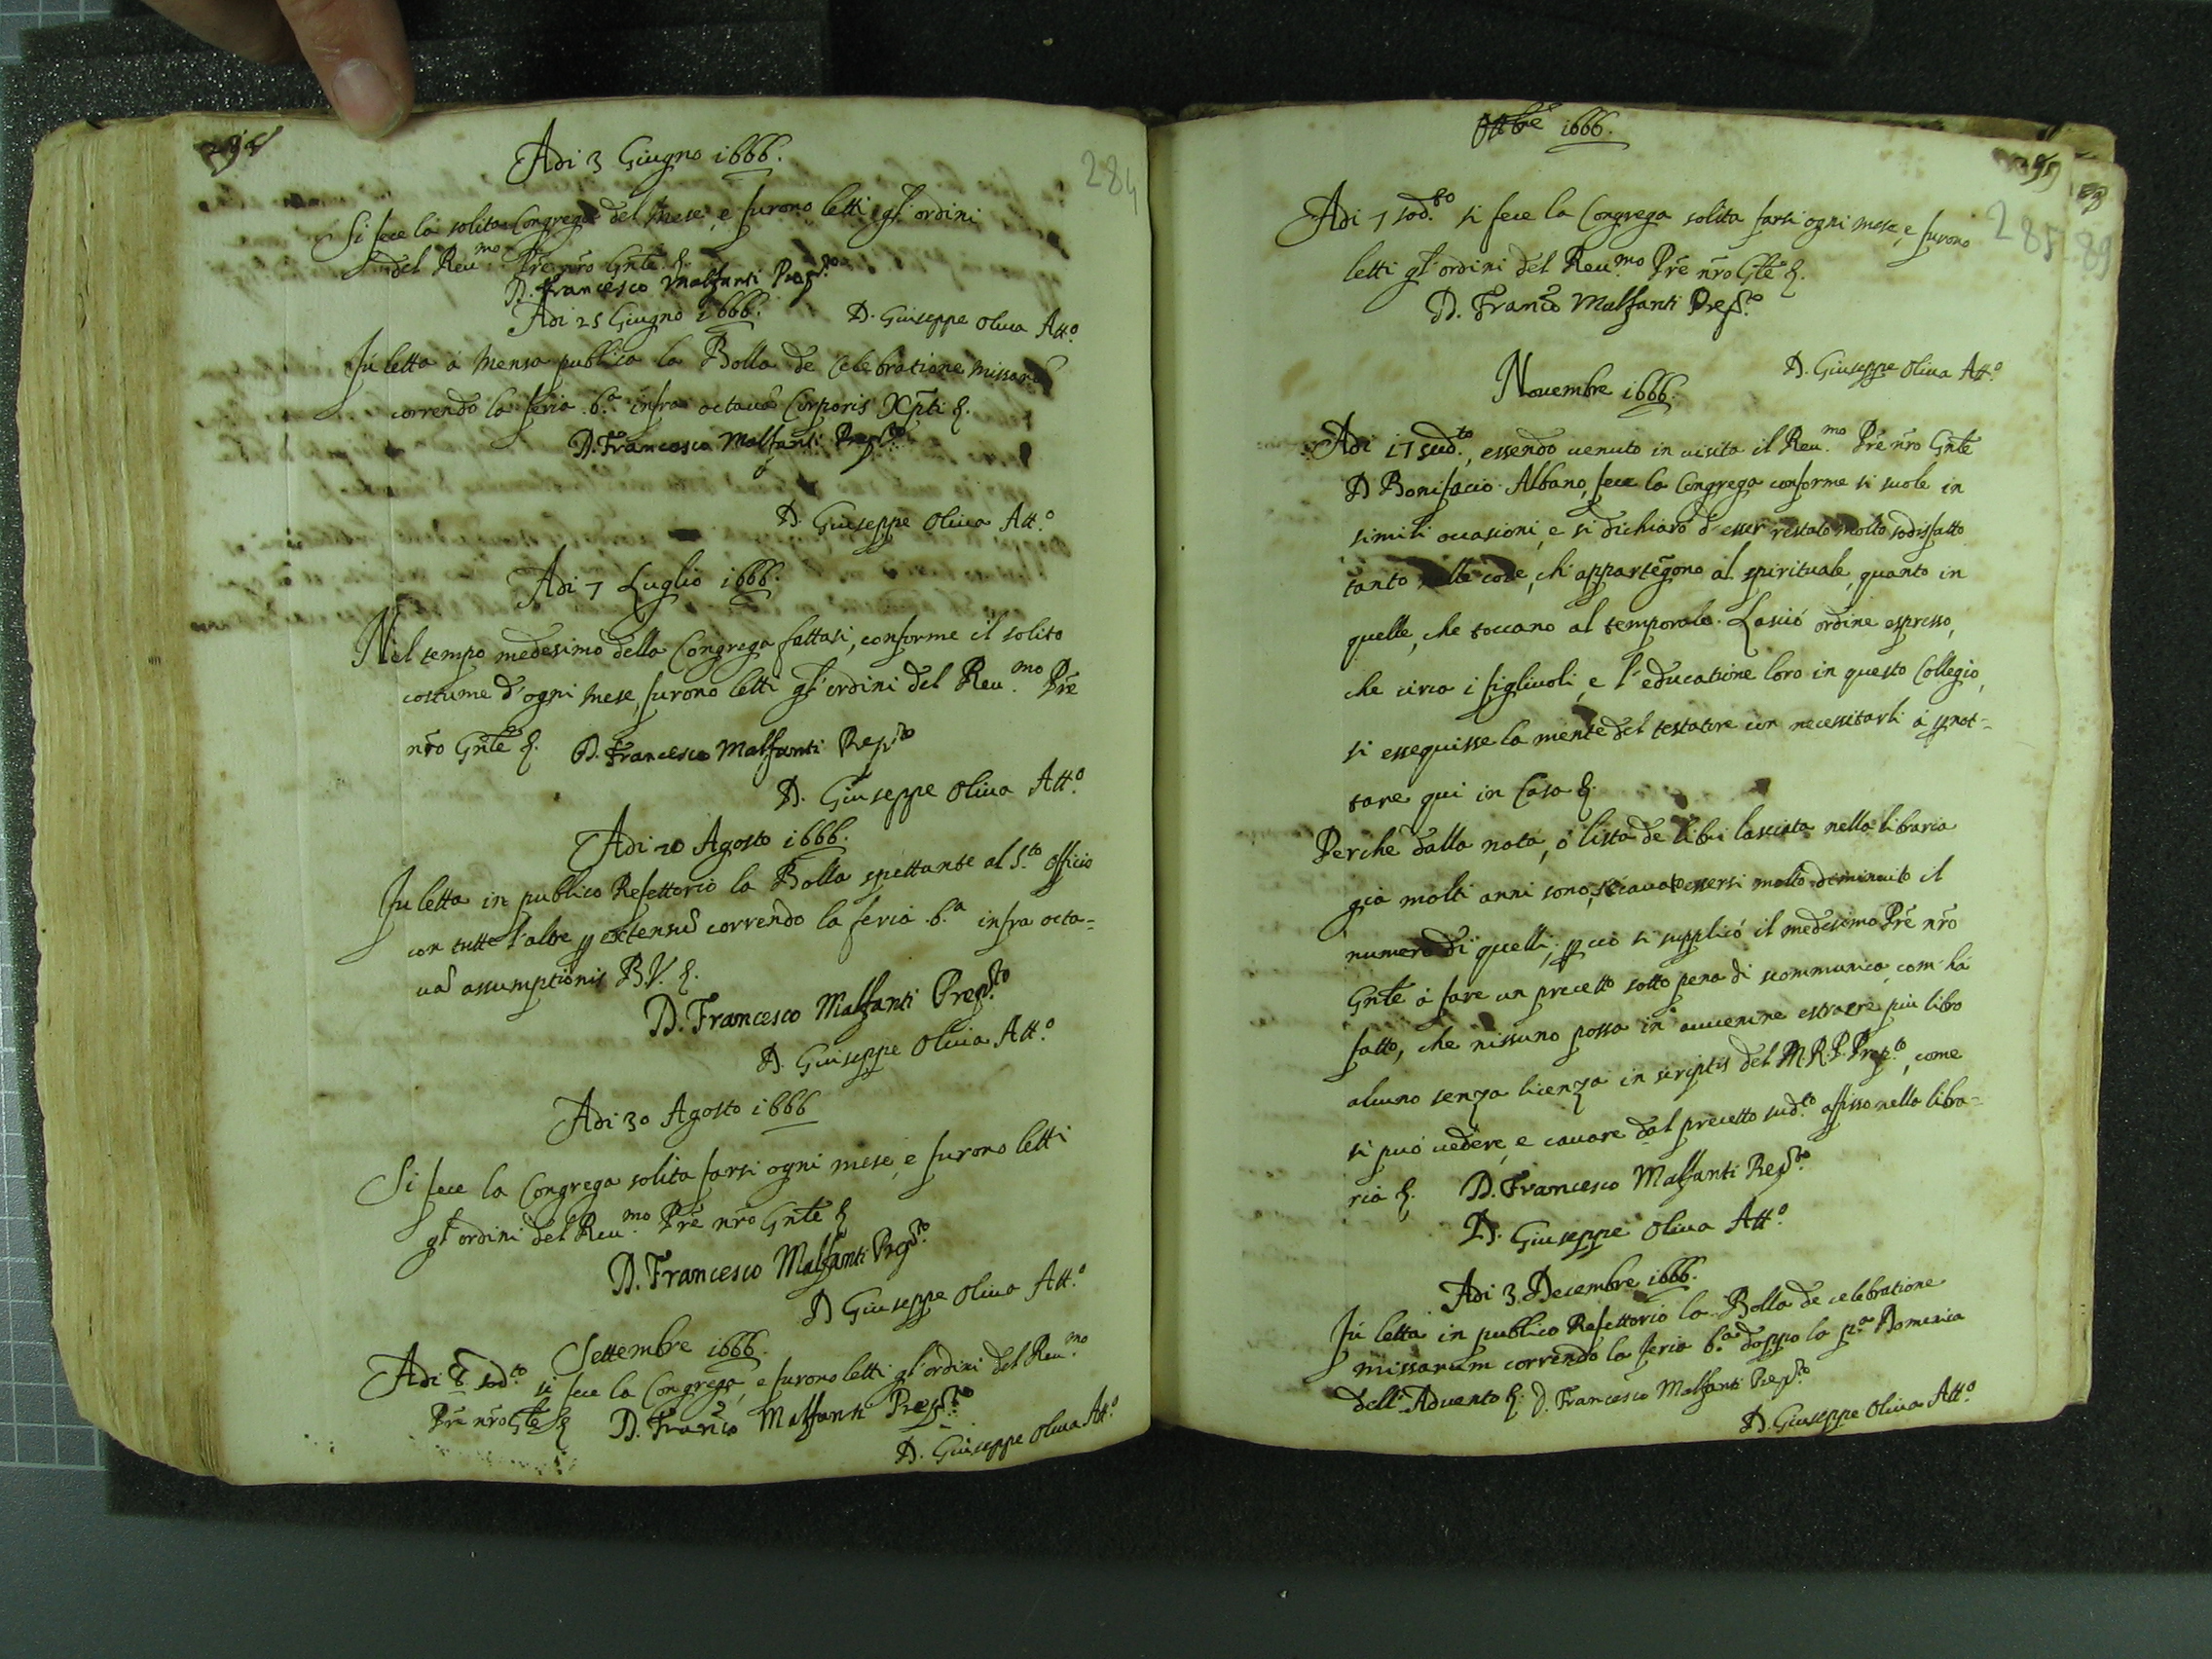 284
Adi 3 Giugno 1666.
Si fece la solita Congrega del Mese, e furono letti gl'ordini
del Reu.mo Prē nr̄o Gn̄le &.
D. Francesco Malfanti Prep.to
Adi 25 Giugno 1666.
D. Giuseppe Oliua Att.o
Fù letta à Mensa publica la Bolla de Celebratione missarū
correndo la feria 6.a infra octauā Corporis Xp̄ti &.
D. Francesco Malfanti Prep.to
D. Giuseppe Oliua Att.o
Adi 7 Luglio 1666.
Nel tempo medesimo della Congrega fattasi, conforme il solito
costume d'ogni Mese, furono letti gl'ordini del Reu.mo Prē
nr̄o Gn̄le &. D. Francesco Malfanti Prep.to
D. Giuseppe Oliua Att.o
Adi 20 Agosto 1666.
Fu letta in publico Refettorio la Bolla spettante al S.to Officio
con tutte l'altre ꝑ extensū correndo la feria 6.a infra octa=
uā assumptionis B.V. &.
D. Francesco Malfanti Prep.to
D. Giuseppe Oliua Att.o
Adi 30 Agosto 1666
Si fece la Congrega solita farsi ogni mese, e furono letti
gl'ordini del Reu.mo Prē nr̄o Gn̄le &
D. Francesco Malfanti Prep.to
D Giuseppe Oliua Att.o
Settembre 1666.
Adi 8 sod.to si fece la Congrega, e furono letti gl'ordini del Reu.mo
Prē nr̄o Gn̄le & D. Franc̄o Malfanti Prep.to
D. Giuseppe Oliua Att.o
8bre 1666.
285 89
Adi 7 sod.to si fece la Congrega solita farsi ogni mese, e furono
letti gl'ordini del Reu.mo Prē nr̄o Gn̄le &.
D. Franc̄o Malfanti Prep.to
D. Giuseppe Oliua Att.o
Nouembre 1666.
Adi 17 sud.to, essendo uenuto in uisita il Reu.mo Prē nr̄o Gn̄le
D Bonifacio Albano, fece la Congrega conforme si suole in
simili occasioni, e si dichiarò d'esser restato molto sodisfatto
tanto nelle cose, ch'appartēgono al spirituale, quanto in
quelle, che toccano al temporale. Lasciò ordine espresso,
che circa i figliuoli, e l'educatione loro in questo Collegio,
si essequisse la mente del testatore con necessitarli à ꝑnot=
tare qui in Casa &.
Perche dalla nota, ò lista de libri lasciata nella libraria
già molti anni sono, si cauò essersi molto diminuito il
numero di quelli; ꝑ ciò si supplicò il medesimo Prē nr̄o
Gn̄le à fare un precetto sotto pena di scommunica, com'hà
fatto, che nissuno possa in auuenire estraere più libro
alcuno senza licenza in scriptis del M.R.P. Prep.to, come
si può uedere, e cauare dal precetto sud.to affisso nella libra=
ria &. D. Francesco Malfanti Prep.to
D. Giuseppe Oliua Att.o
Adi 3. Decembre 1666.
Fù letta in publico Refettorio la Bolla de celebratione
missarum correndo la feria 6.a doppo la p.a Domenica
dell'Aduento &. D. Francesco Malfanti Prep.to
D. Giuseppe Oliua Att.o